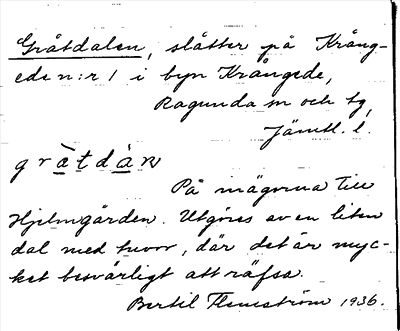 Gråtdalen, slåtter på Krång-
ede n:r 1 i byn Krångede,
Ragunda sn och tg,
Jämtl. l.
gràtdàn
På mägorna till
Hjelmgården. Utgöres av en liten
dal med tuvor, där det är myc-
ket besvärligt att räfsa.
Bertil Flemström 1936.